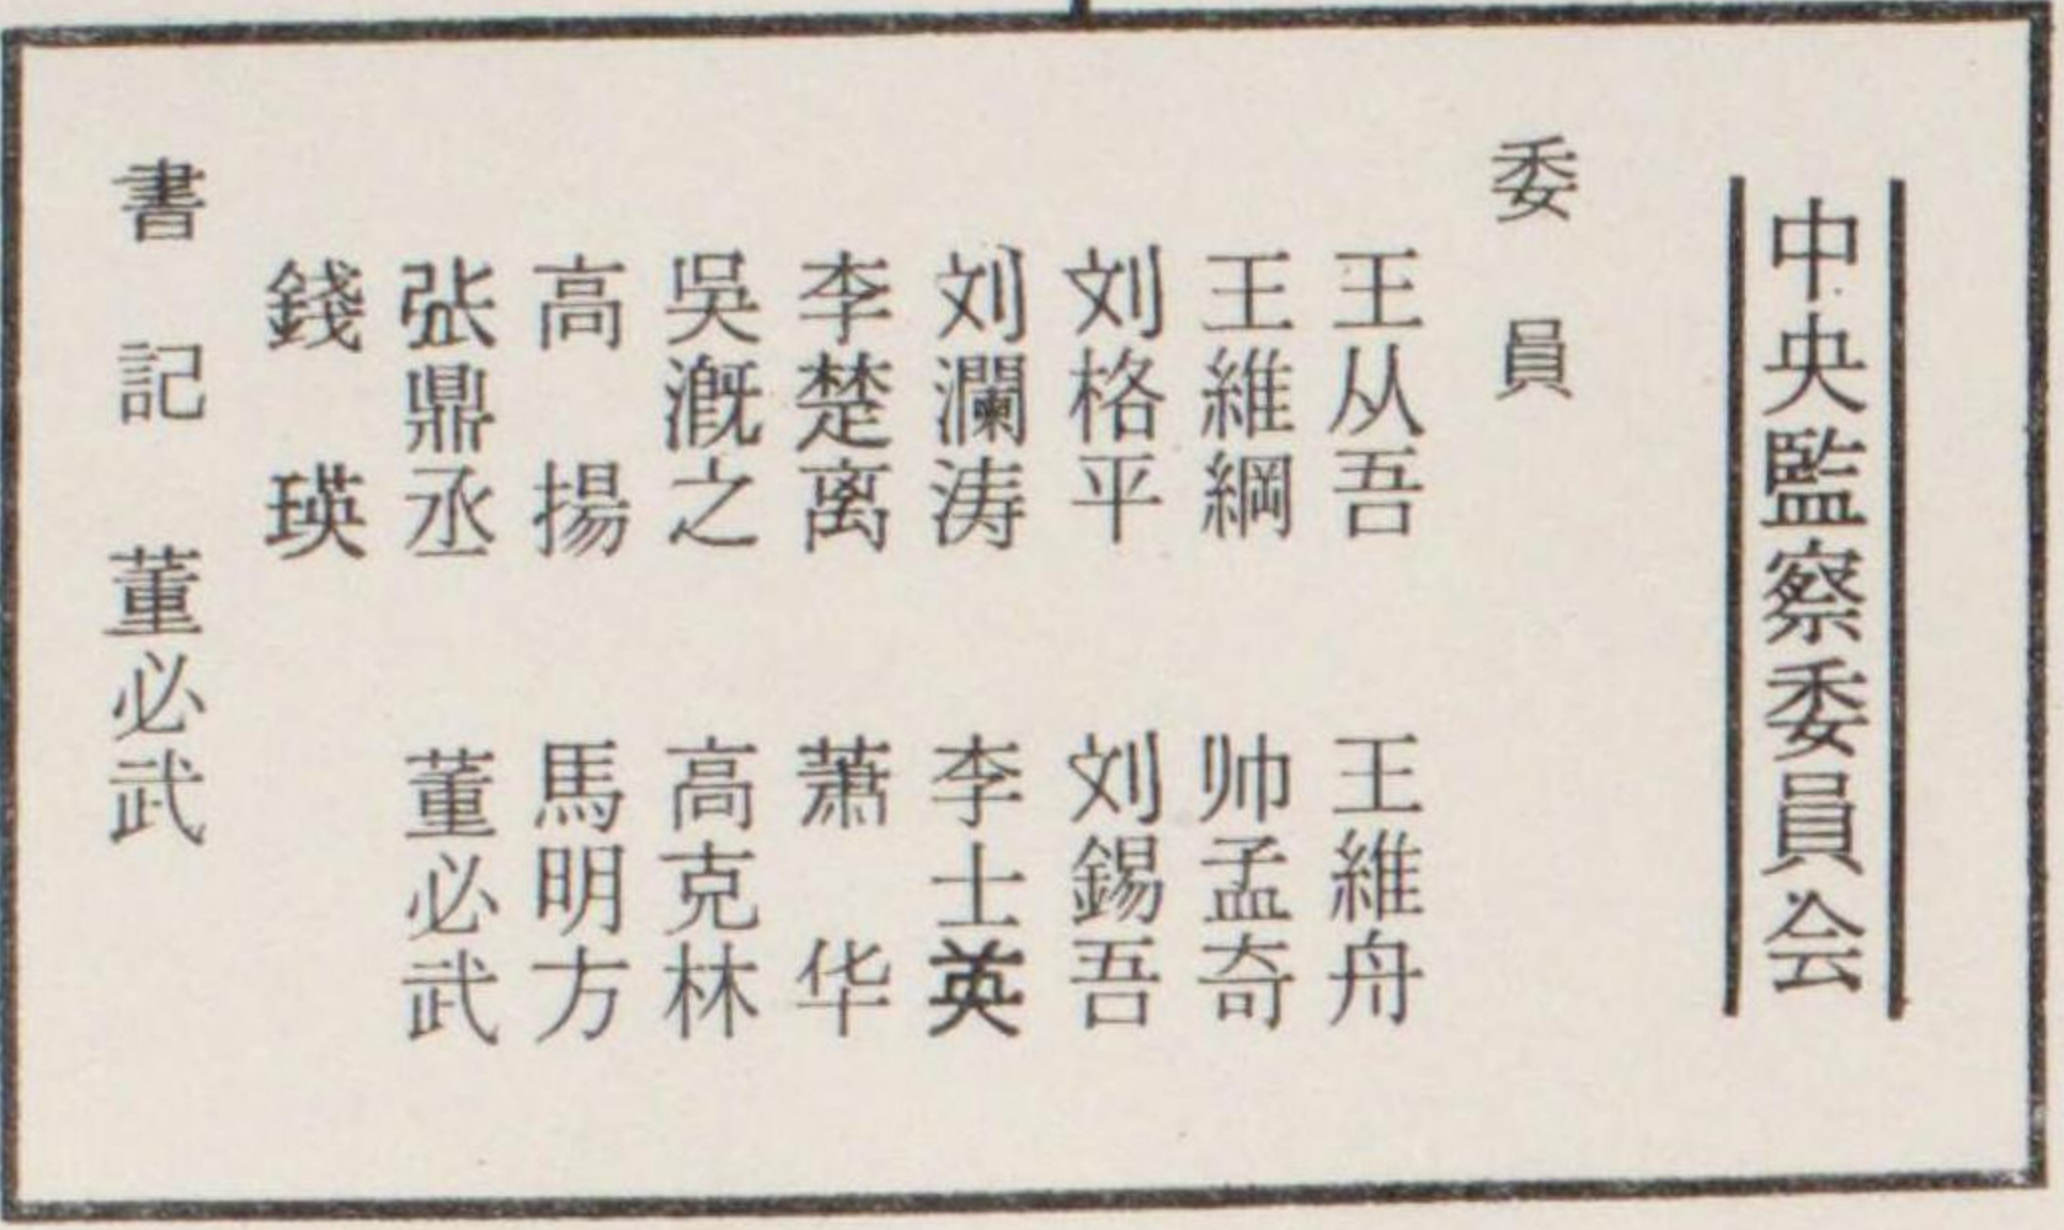 中央監察委員会
委員
王从吾 王維舟
王維綱 帅孟奇
刘格平 刘錫吾
刘瀾涛 李士英
李楚离 萧华
吳溉之 高克林
高揚 馬明方
张鼎丞 董必武
錢瑛
書記 董必武